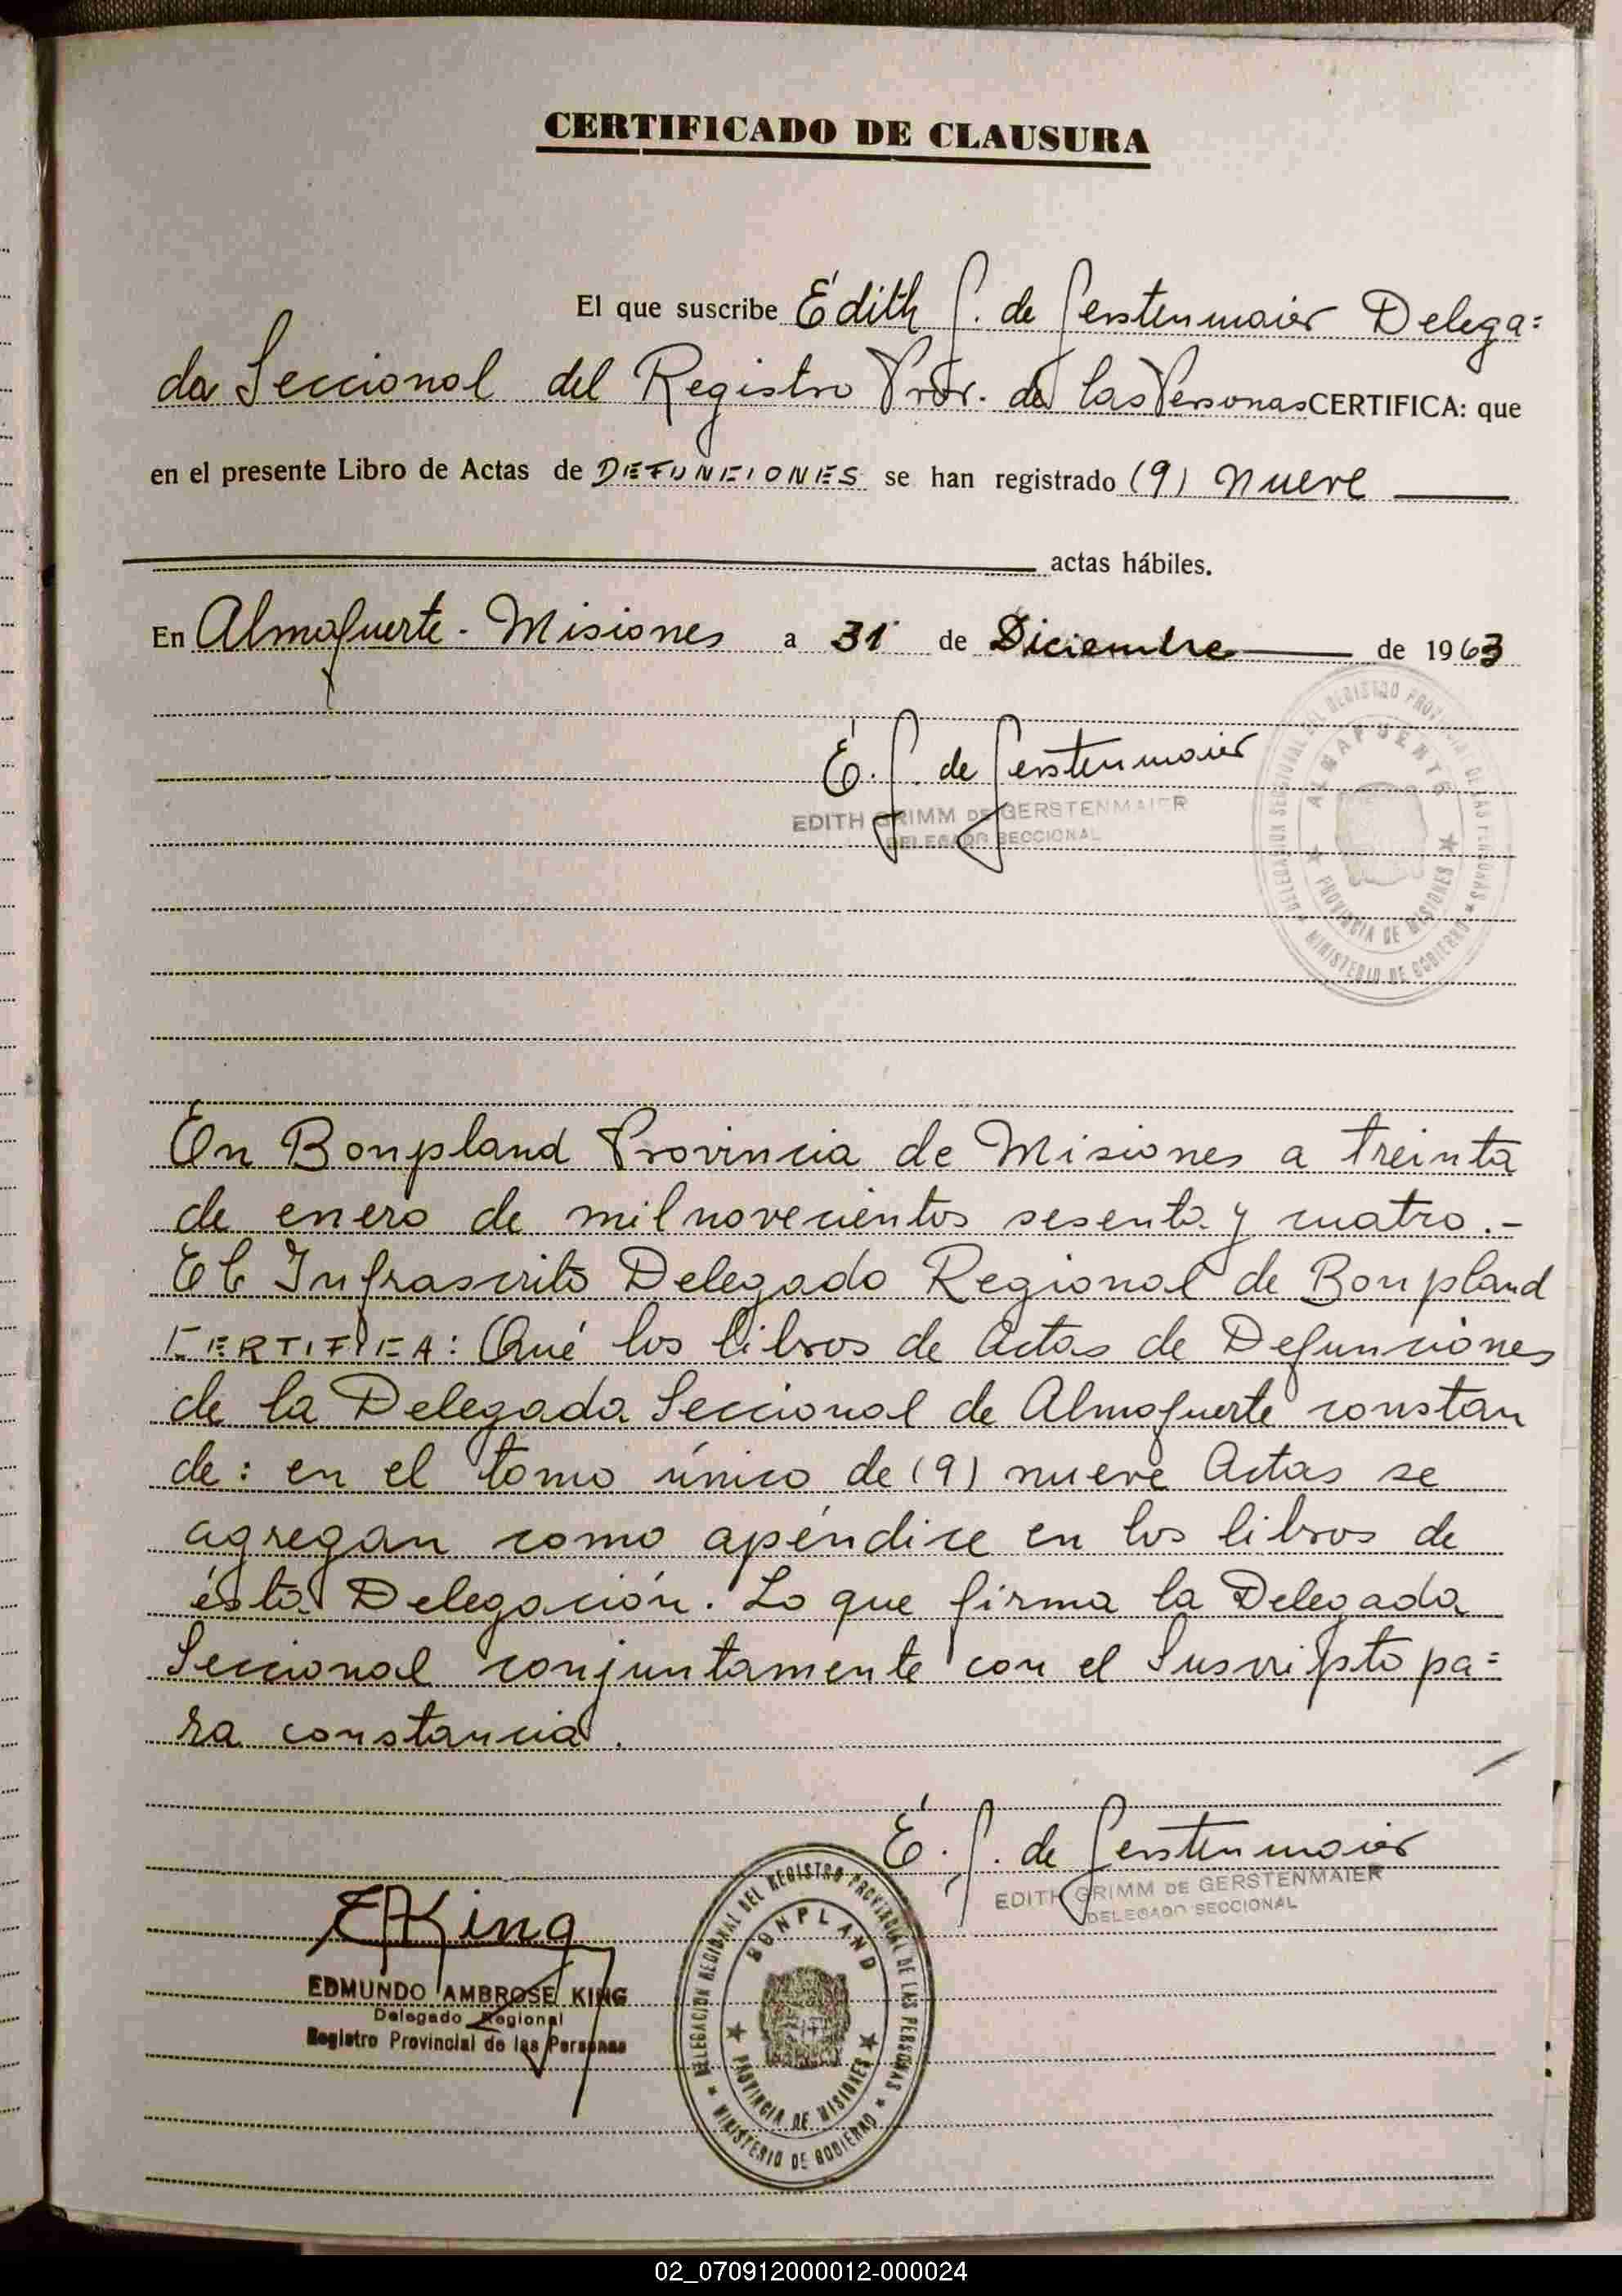 CERTIFICADO DE CLAUSURA
El que suscribe Edith G. de Gerstenmaier Delega=
da Seccional del Registro Prov. de las Personas CERTIFICA: que
en el presente Libro de Actas de DEFUNCIONES se han registrado (9) nueve
actas hábiles.
En Almafuerte - Misiones a 31 de Diciembre de 1963
E. G. de Gerstenmaier
EDITH GRIMM DE GERSTENMAIER
DELEGADO SECCIONAL
DELEGACION SECCIONAL DEL REGISTRO PROVINCIAL DE LAS PERSONAS
ALMAFUERTE
PROVINCIA DE MISIONES
MINISTERIO DE GOBIERNO
En Bonpland Provincia de Misiones a treinta
de enero de mil novecientos sesenta y cuatro.-
El Infrascrito Delegado Regional de Bonpland
CERTIFICA: Qué los libros de Actas de Defunciones
de la Delegada Seccional de Almafuerte constan
de: en el tomo único de (9) nueve Actas se
agregan como apéndice en los libros de
ésta Delegación. Lo que firma la Delegada
Seccional conjuntamente con el Suscripto pa=
ra constancia.
E. G. de Gerstenmaier
EDITH GRIMM DE GERSTENMAIER
DELEGADO SECCIONAL
EAKing
EDMUNDO AMBROSE KING
Delegado Regional
Registro Provincial de las Personas
DELEGACION REGIONAL DEL REGISTRO PROVINCIAL DE LAS PERSONAS
BONPLAND
PROVINCIA DE MISIONES
MINISTERIO DE GOBIERNO
02_070912000012-000024